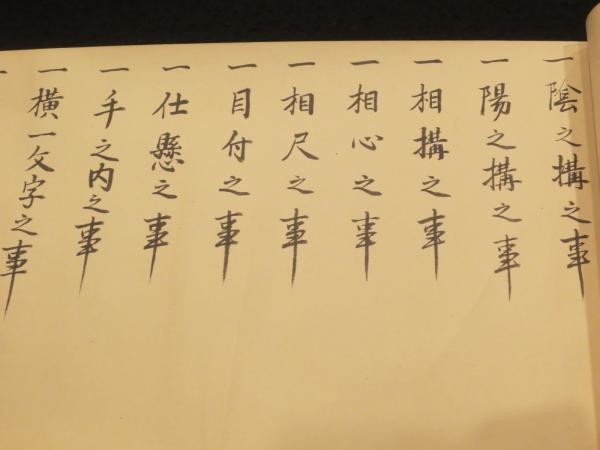 一陰之搆之事
一陽之搆之事
一相搆之事
一相心之事
一相尺之事
一目付之事
一仕懸之事
一手之内之事
一横一文字之事
一